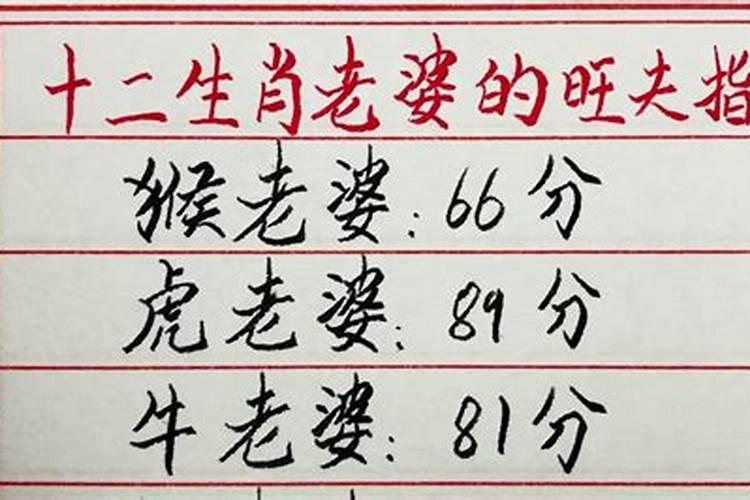 十二生肖老婆的旺夫指
猴老婆：66分
虎老婆：89分
牛老婆：81分